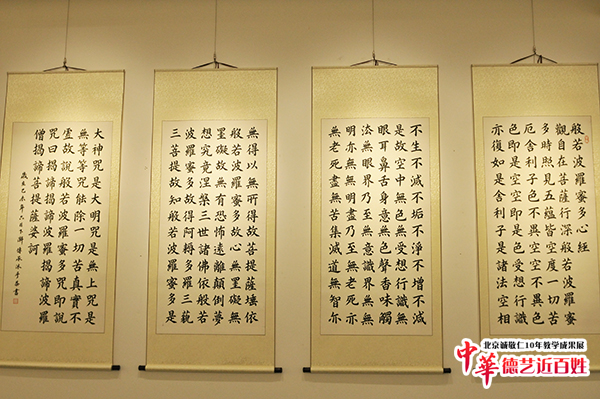 般若波羅蜜多心經
觀自在菩薩行深般若波羅蜜
多時照見五蘊皆空度一切苦
厄舍利子色不異空空不異色
色即是空空即是色受想行識
亦復如是舍利子是諸法空相
不生不滅不垢不淨不增不減
是故空中無色無受想行識無
眼耳鼻舌身意無色聲香味觸
法無眼界乃至無意識界無無
明亦無無明盡乃至無老死亦
無老死盡無苦集滅道無智亦
無得以無所得故菩提薩埵依
般若波羅蜜多故心無罣礙無
罣礙故無有恐怖遠離顛倒夢
想究竟涅槃三世諸佛依般若
波羅蜜多故得阿耨多羅三藐
三菩提故知般若波羅蜜多是
大神咒是大明咒是無上咒是
無等等咒能除一切苦真實不
虛故說般若波羅蜜多咒即說
咒曰揭諦揭諦波羅揭諦波羅
僧揭諦菩提薩婆訶
歲在乙未年六月
北京誠敬仁10年教学成果展
中華德艺近百姓